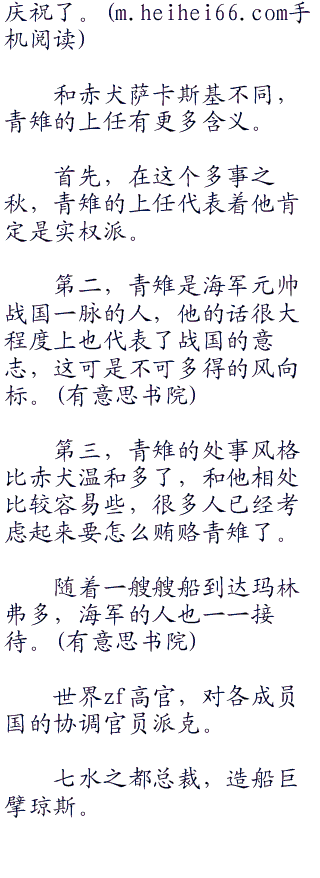 庆祝了。(m.heihei66.com手
机阅读)
和赤犬萨卡斯基不同，
青雉的上任有更多含义。
首先，在这个多事之
秋，青雉的上任代表着他肯
定是实权派。
第二，青雉是海军元帅
战国一脉的人，他的话很大
程度上也代表了战国的意
志，这可是不可多得的风向
标。(有意思书院)
第三，青雉的处事风格
比赤犬温和多了，和他相处
比较容易些，很多人已经考
虑起来要怎么贿赂青雉了。
随着一艘艘船到达玛林
弗多，海军的人也一一接
待。(有意思书院)
世界zf高官，对各成员
国的协调官员派克。
七水之都总裁，造船巨
擘琼斯。